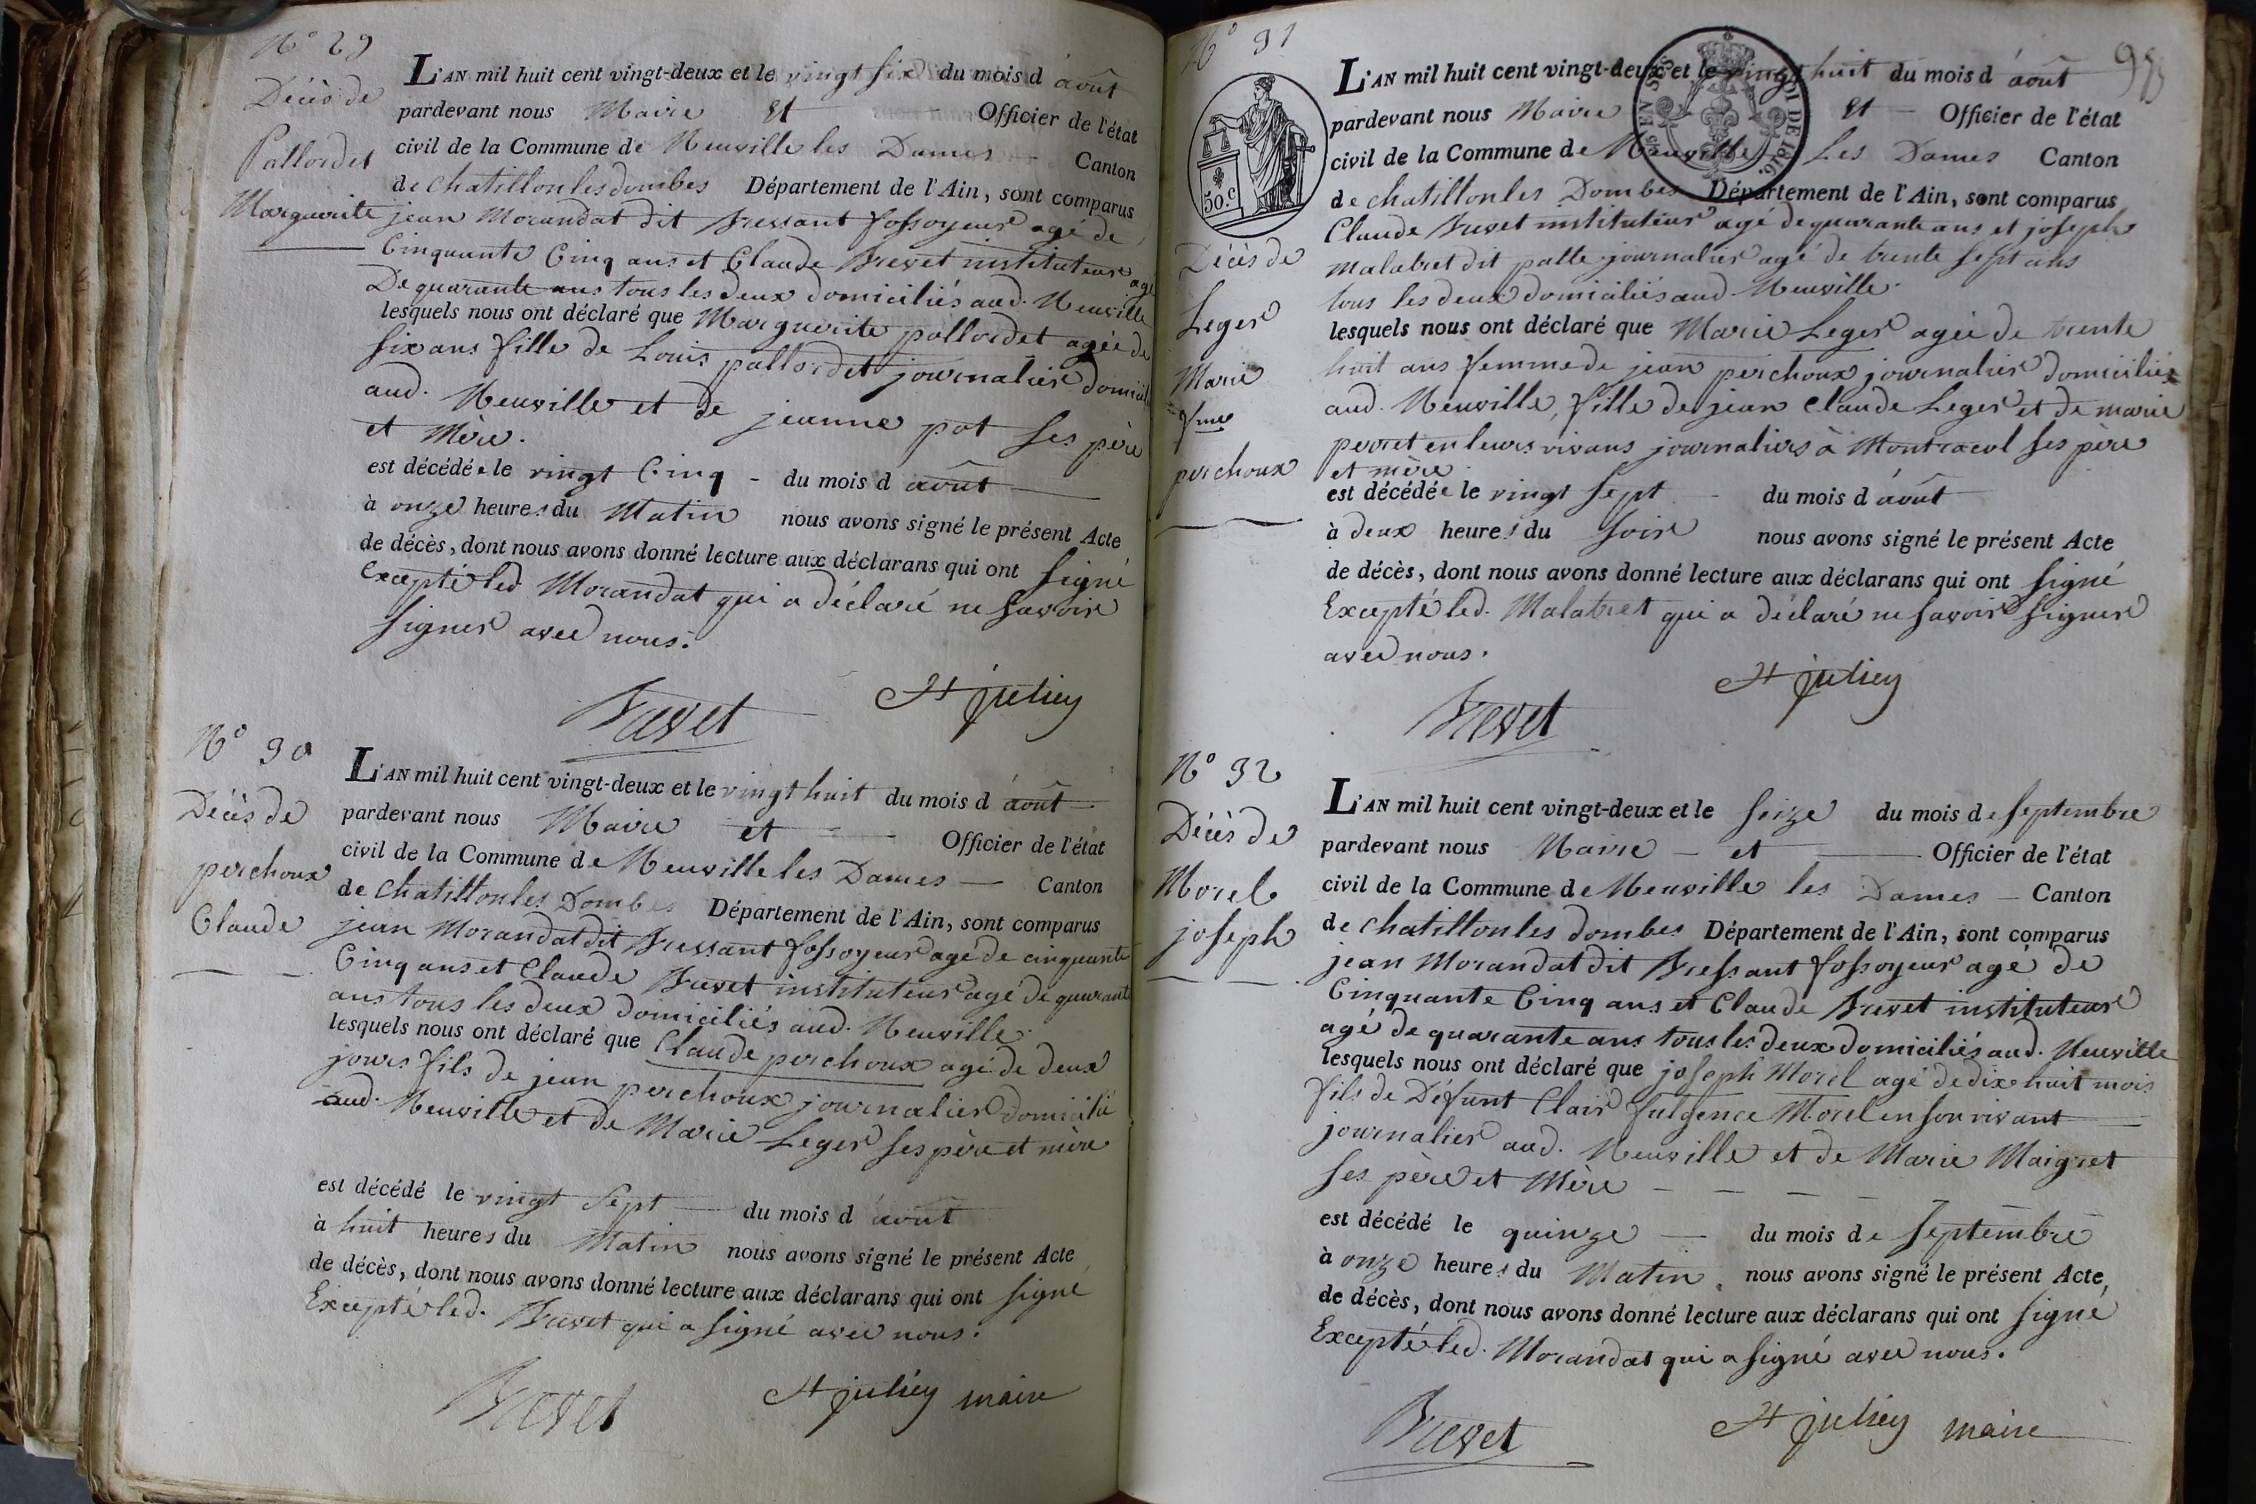 N° 29
Décès de
Pallordet
Marguerite
L'AN mil huit cent vingt-deux et le vingt six du mois d août
pardevant nous Maire et Officier de l'état
civil de la Commune de Neuville les Dames Canton
de chatillon les dombes Département de l'Ain, sont comparus
jean Morandat dit Bressant fossoyeur agé de
Cinquante Cinq ans et Claude Brevet instituteur agé
De quarante ans tous les deux domiciliés aud. Neuville
lesquels nous ont déclaré que Marguerite pallordet agée de
six ans fille de Louis pallordet journalier domicilié
aud. Neuville et de jeanne pat ses père
et Mère.
est décédée le vingt Cinq - du mois d août
à onze heures du Matin nous avons signé le présent Acte
de décès, dont nous avons donné lecture aux déclarans qui ont signé
Excepté led Morandat qui a déclaré ne savoir
signer avec nous.
Brevet St julien
N° 30
Décès de
perchoux
Claude
L'AN mil huit cent vingt-deux et le vingt huit du mois d août
pardevant nous Maire et Officier de l'état
civil de la Commune de Neuville les Dames Canton
de chatillon les Dombes Département de l'Ain, sont comparus
jean Morandat dit Bressant fossoyeur agé de cinquante
Cinq ans et Claude Brevet instituteur agé de quarante
ans tous les deux domiciliés aud. Neuville.
lesquels nous ont déclaré que Claude perchoux agé de deux
jours fils de jean perchoux journalier domicilié
aud. Neuville et de Marie Leger ses père et mère
est décédé le vingt sept du mois d août
à huit heures du Matin nous avons signé le présent Acte
de décès, dont nous avons donné lecture aux déclarans qui ont signé
Excepté led. Brevet qui a signé avec nous.
Brevet St julien maire
N° 31
30.C
EN SUS
LOI DE 1816.
Décès de
Leger
Marie
fme
perchoux
L'AN mil huit cent vingt-deux et le vingt huit du mois d août
pardevant nous Maire et Officier de l'état
civil de la Commune de Neuville Les Dames Canton
de chatillon les Dombes Département de l'Ain, sont comparus
Claude Brevet instituteur agé de quarante ans et joseph
malatret dit patte journalier agé de trente sept ans
tous les deux domiciliés aud Neuville.
lesquels nous ont déclaré que Marie Leger agée de trente
huit ans femme de jean perchoux journalier domiciliés
aud. Neuville, fille de jean Claude Leger et de marie
perret en leurs vivans journaliers à Montracol ses père
et mère
est décédée le vingt sept du mois d août
à deux heures du soir nous avons signé le présent Acte
de décès, dont nous avons donné lecture aux déclarans qui ont signé
Excepté led. Malatret qui a déclaré ne savoir signer
avec nous.
Brevet St julien
N° 32
Décès de
Morel
joseph
L'AN mil huit cent vingt-deux et le seize du mois de septembre
pardevant nous Maire et Officier de l'état
civil de la Commune de Neuville les Dames Canton
de chatillon les dombes Département de l'Ain, sont comparus
jean Morandat dit Bressant fossoyeur agé de
Cinquante Cinq ans et Claude Brevet instituteur
agé de quarante ans tous les deux domiciliés aud. Neuville
lesquels nous ont déclaré que joseph Morel agé de dix huit mois
fils de Défunt Clair fulgence Morel en son vivant
journalier aud. Neuville et de Marie Maigret
ses père et Mère
est décédé le quinze du mois de septembre
à onze heures du Matin. nous avons signé le présent Acte
de décès, dont nous avons donné lecture aux déclarans qui ont signé
Excepté led. Morandat qui a signé avec nous.
Brevet St julien maire